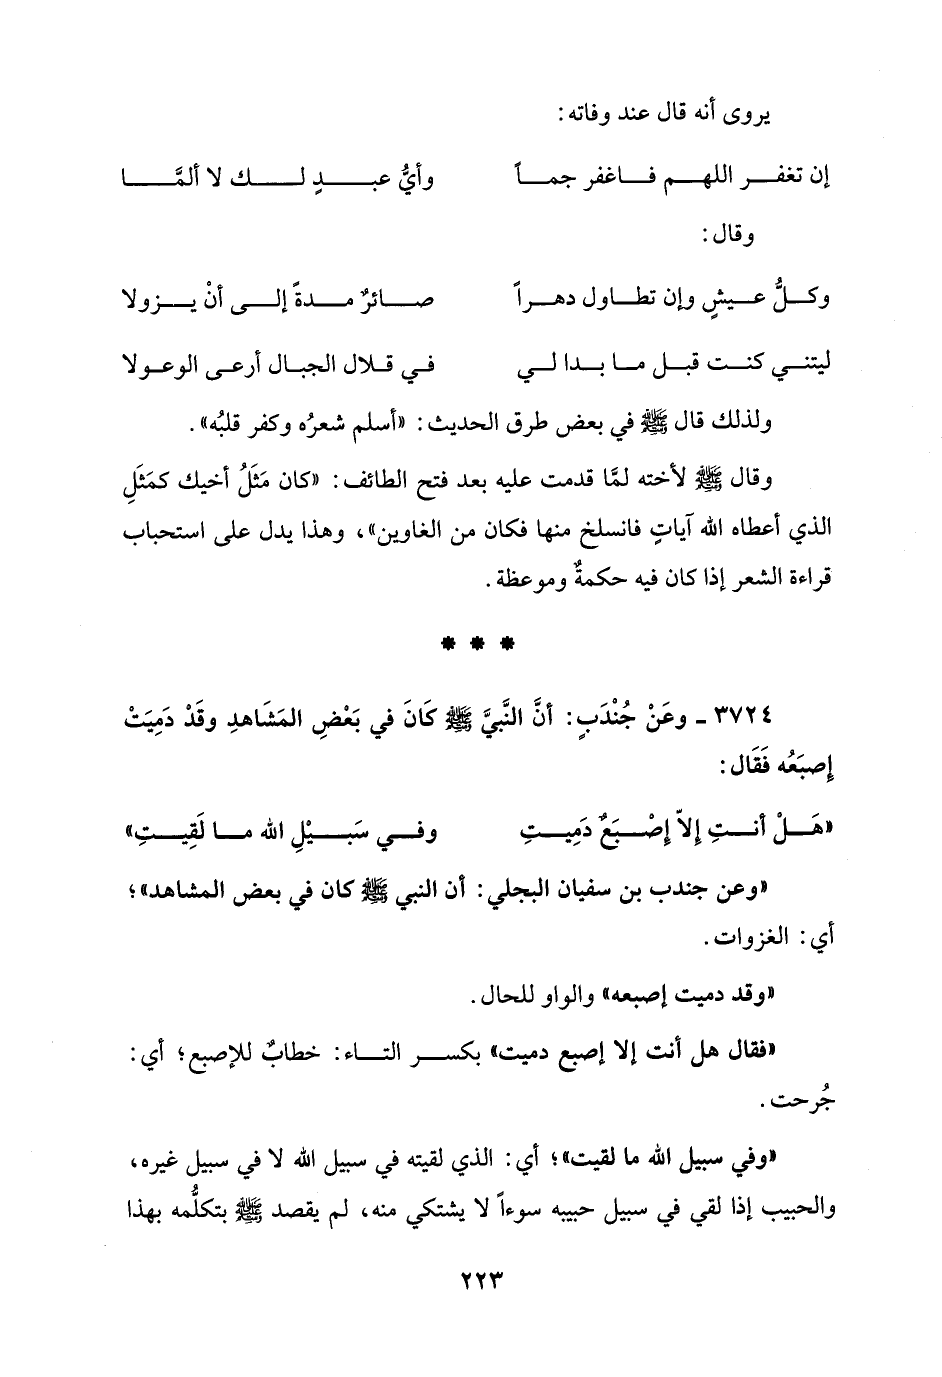 يروى أنه قال عند وفاته:
إن تغفر اللهم فاغفر جماً وأيُّ عبدٍ لك لا ألمَّا
وقال:
وكلُّ عيشٍ وإن تطاول دهراً صائرٌ مدةً إلى أنْ يزولا
ليتني كنت قبل ما بدا لي في قلال الجبال أرعى الوعولا
ولذلك قال ﷺ في بعض طرق الحديث: «أسلم شعرُه وكفر قلبُه».
وقال ﷺ لأخته لمَّا قدمت عليه بعد فتح الطائف: «كان مَثَلُ أخيك كمَثَلِ
الذي أعطاه الله آياتٍ فانسلخ منها فكان من الغاوين»، وهذا يدل على استحباب
قراءة الشعر إذا كان فيه حكمةٌ وموعظة.
* * *
٣٧٢٤ ـ وعَنْ جُنْدَبٍ: أنَّ النَّبيَّ ﷺ كَانَ في بَعْضِ المَشَاهدِ وقَدْ دَمِيَتْ
إِصبَعُه فَقَال:
«هَلْ أنتِ إِلاّ إصْبَعٌ دَمِيتِ وفي سَبيْلِ الله ما لَقِيتِ»
«وعن جندب بن سفيان البجلي: أن النبي ﷺ كان في بعض المشاهد»؛
أي: الغزوات.
«وقد دميت إصبعه» والواو للحال.
«فقال هل أنت إلا إصبع دميت» بكسر التاء: خطابٌ للإصبع؛ أي:
جُرحت.
«وفي سبيل الله ما لقيت»؛ أي: الذي لقيته في سبيل الله لا في سبيل غيره،
والحبيب إذا لقي في سبيل حبيبه سوءاً لا يشتكي منه، لم يقصد ﷺ بتكلُّمه بهذا
٢٢٣